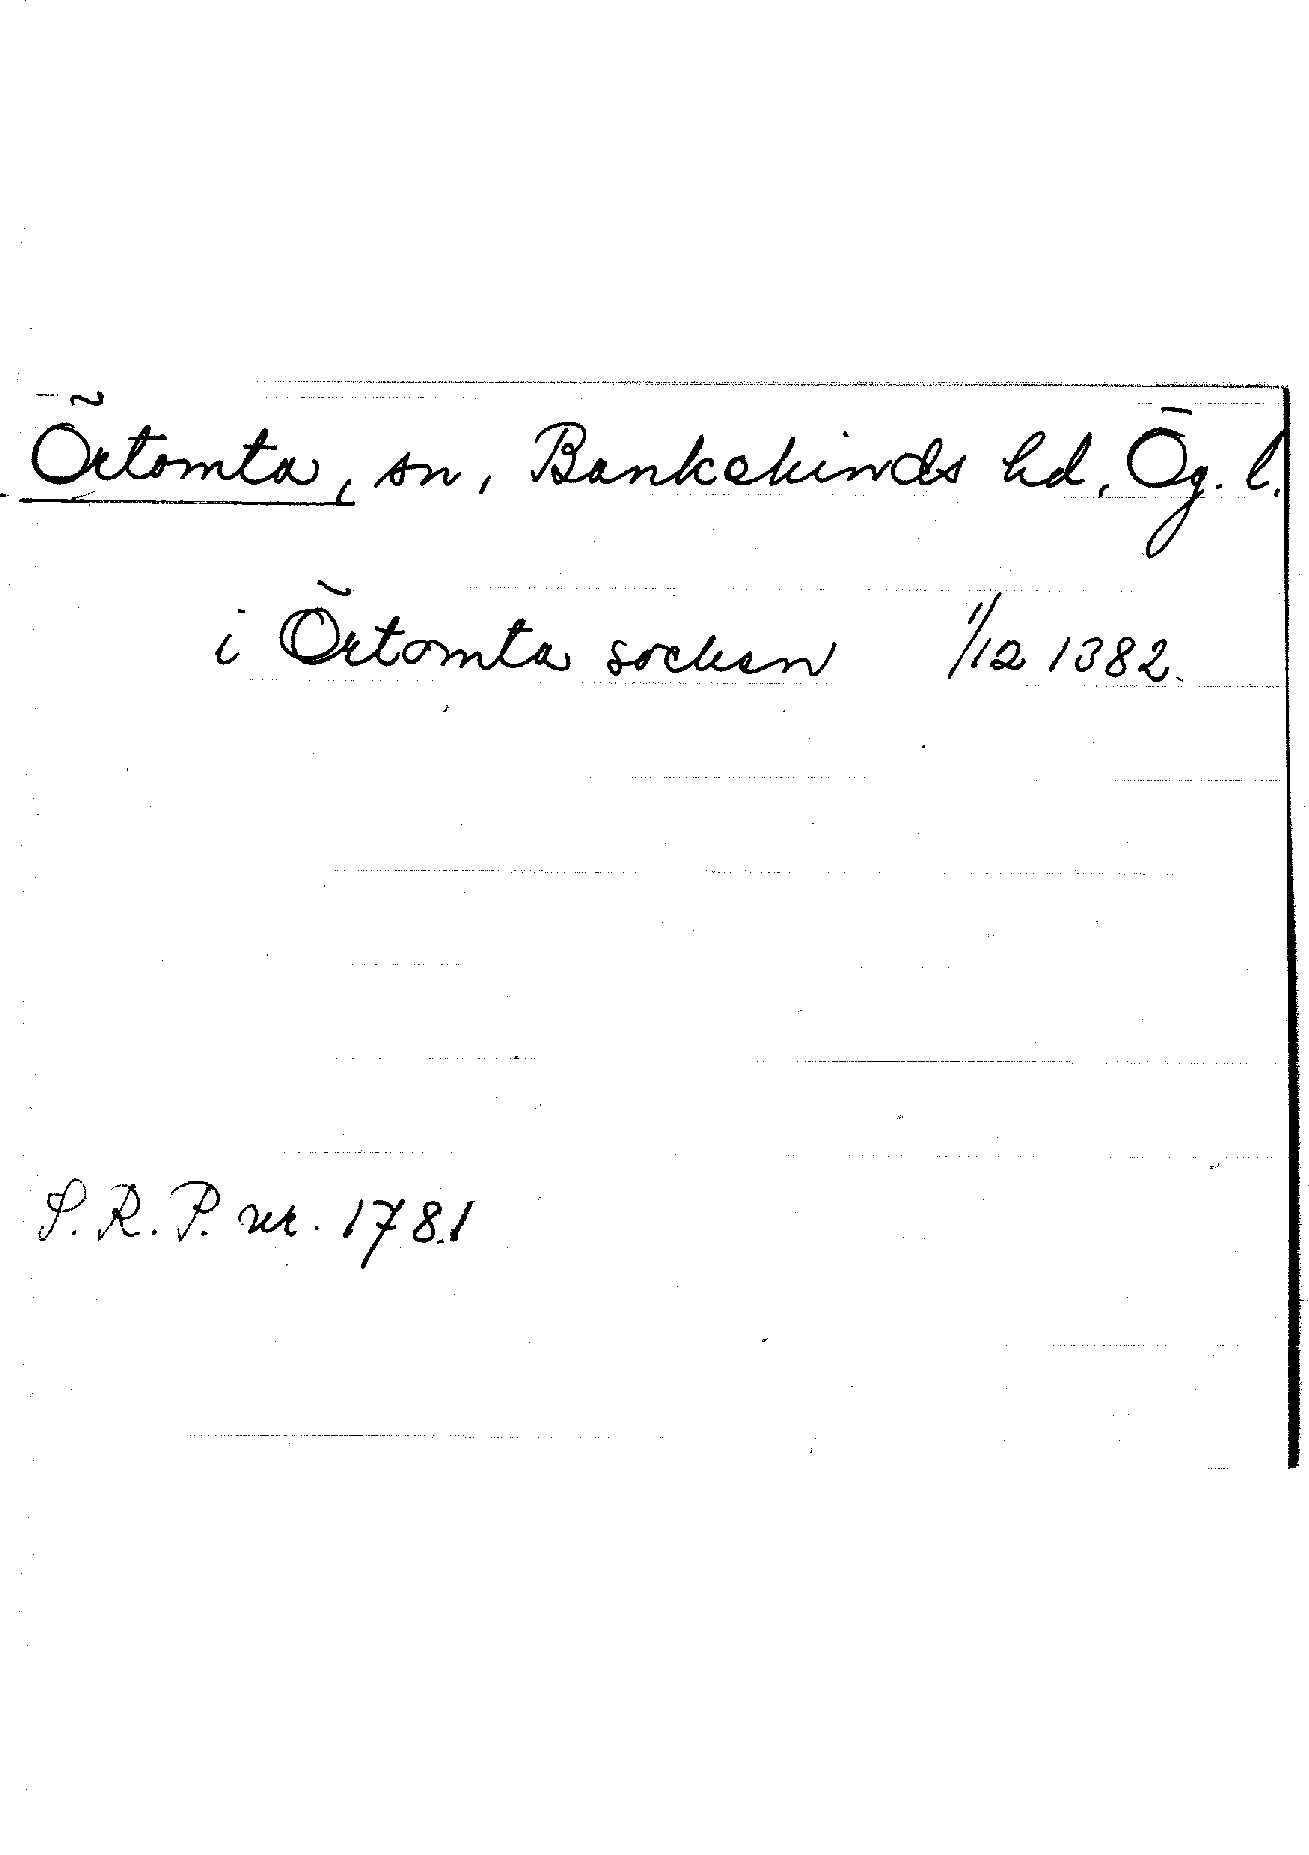 Örtomta, sn, Bankekinds hd, Ög. l.
i Örtomta socken 1/12 1382.
S. R. P. nr. 1781